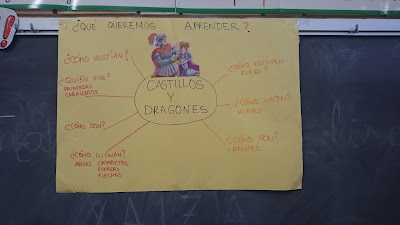 ¿QUÉ QUEREMOS APRENDER?
¿CÓMO VESTÍAN?
¿QUIÉN VIVE?
PRINCESAS
CABALLEROS
¿CÓMO SON?
¿CÓMO LUCHAN?
ARMAS CATAPULTAS
ESPADAS
FLECHAS
CASTILLOS
Y
DRAGONES
¿CÓMO ESCUPEN
FUEGO?
¿CÓMO NACEN?
HUEVOS
¿CÓMO SON?
DIENTES